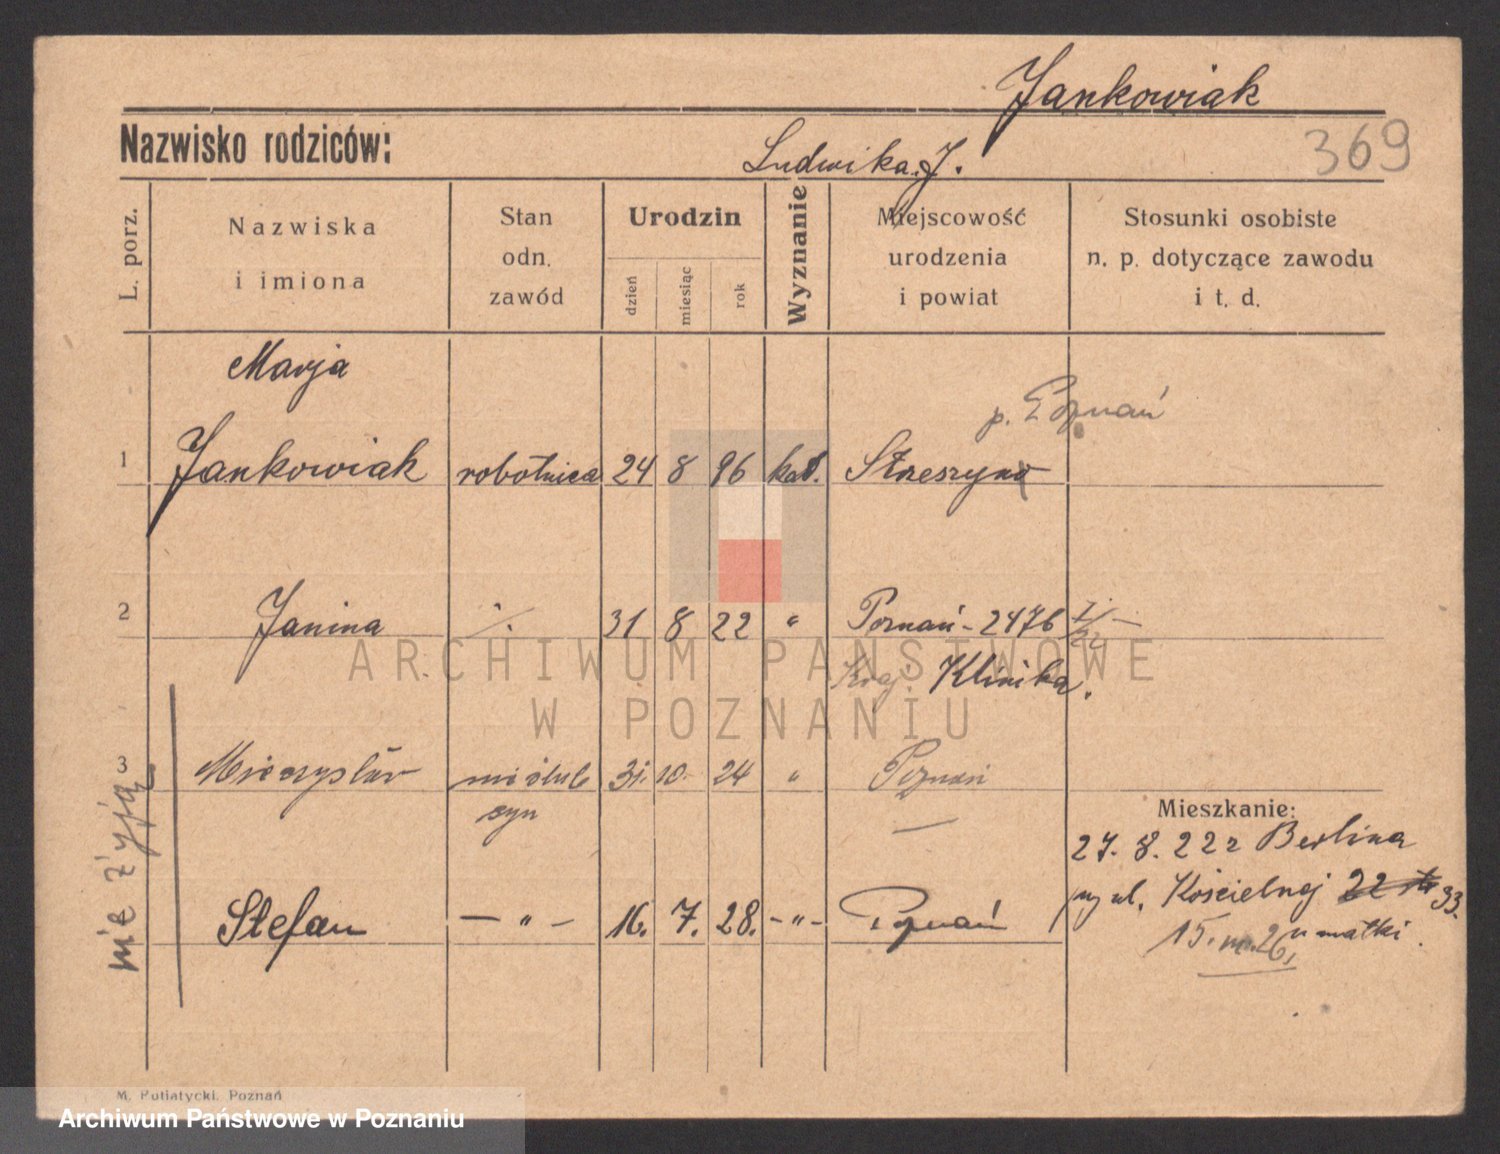 Jankowiak
369
Nazwisko rodziców:
Ludwika J.
L. porz.
Nazwiska i imiona
Stan odn. zawód
Urodzin
dzień miesiąc rok
Wyznanie
Miejscowość urodzenia i powiat
Stosunki osobiste n. p. dotyczące zawodu i t. d.
Marja
p. Poznań
1 Jankowiak robotnica 24 8 96 kat. Strzeszyno
2 Janina 31 8 22 " Poznań - 2476 I/22
Kraj. Klinika.
ARCHIWUM PAŃSTWOWE
W POZNANIU
3 Mieczysław nieślub 31. 10. 24 " Poznań
syn
Mieszkanie:
27. 8. 22 z Berlina
przy ul. Kościelnej 33.
Stefan — " — 16. 7. 28. - " - Poznań
15. m. 26, u matki.
nie żyją
M. Putiatycki, Poznań
Archiwum Państwowe w Poznaniu